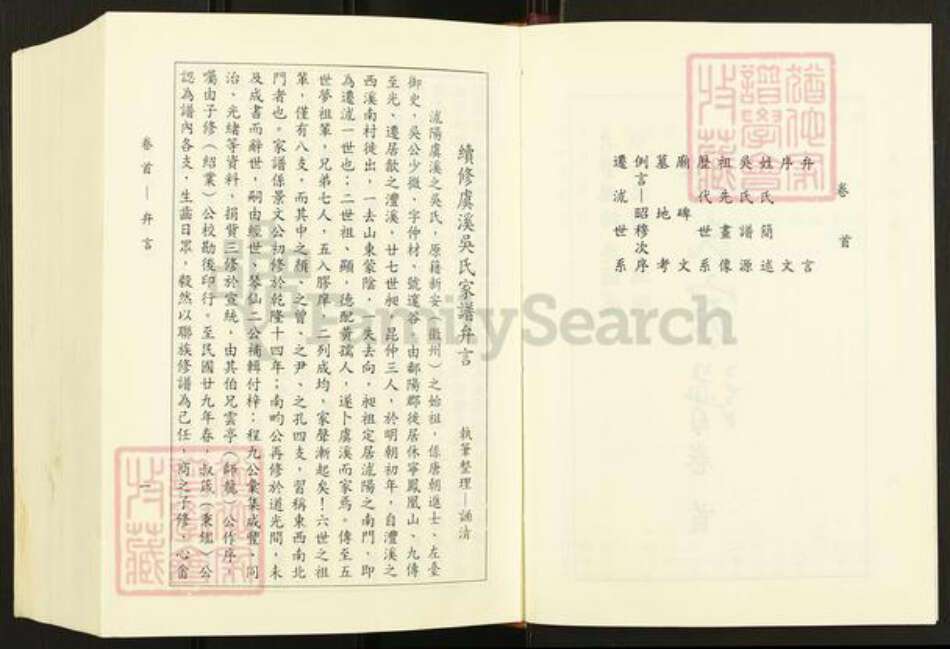 卷首
弁言
序文
姓氏簡述
吳氏譜源
祖先畫像
歷代世系
廟碑文
墓地考
例言—昭穆次序
遷㳍世系
續修虞溪吳氏家譜弁言
執筆整理—誦清
㳍陽虞溪之吳氏，原籍新安（徽州）之始祖，係唐朝進士、左臺
御史、吳公少微、字仲材、號邃谷，由鄱陽郡徙居休寧鳳凰山、九傳
至光、遷居歙之澧溪，廿七世昶，昆仲三人，於明朝初年，自澧溪之
西溪南村徙出，一去山東蒙陰，一失去向，昶祖定居㳍陽之南門，即
為遷㳍一世也；二世祖、顯，德配黃孺人，遂卜虞溪而家焉。傳至五
世夢祖輩，兄弟七人，五入膠庠，二列成均，家聲漸起矣！六世之祖
輩，僅有八支，而其中之顏、之曾、之尹、之孔四支，習稱東西南北
門者也。家譜係景文公初修於乾隆十四年；南畇公再修於道光間，未
及成書而辭世，嗣由經世、琴仙二公補輯付梓；程九公彙集咸豐、同
治、光緒等資料，捐貲三修於宣統，由其伯兄雲亭（師龍）公作序，
囑由子修（紹業）公校勘後印行。至民國廿九年春，叔箴（秉鑑）公
認為譜內各支，生齒日眾，毅然以聯族修譜為己任，商之子修、心畬
卷首—弁言
一
FamilySearch